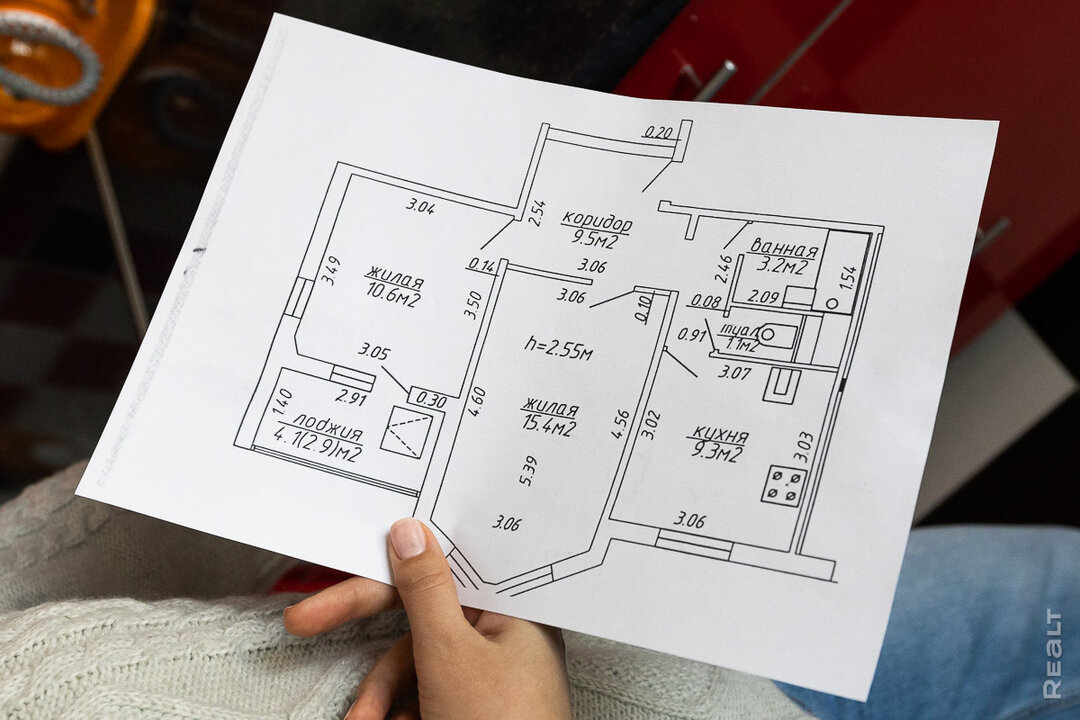 0.20
3.04
2.54
коридор
9.5м2
ванная
3.2м2
3.49
жилая
10.6м2
0.14
3.06
2.46
1.54
3.50
3.06
0.10
0.08
2.09
h=2.55м
0.91
туал
1.1м2
3.05
3.07
1.40
2.91
0.30
4.60
жилая
15.4м2
4.56
3.02
кухня
9.3м2
3.03
лоджия
4.1(2.9)м2
5.39
3.06
3.06
REALT